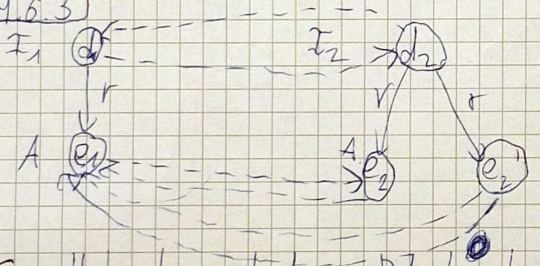 1.6.3
I₁ d I₂ d₂
r r r
A e₁ A e₂ e₂'